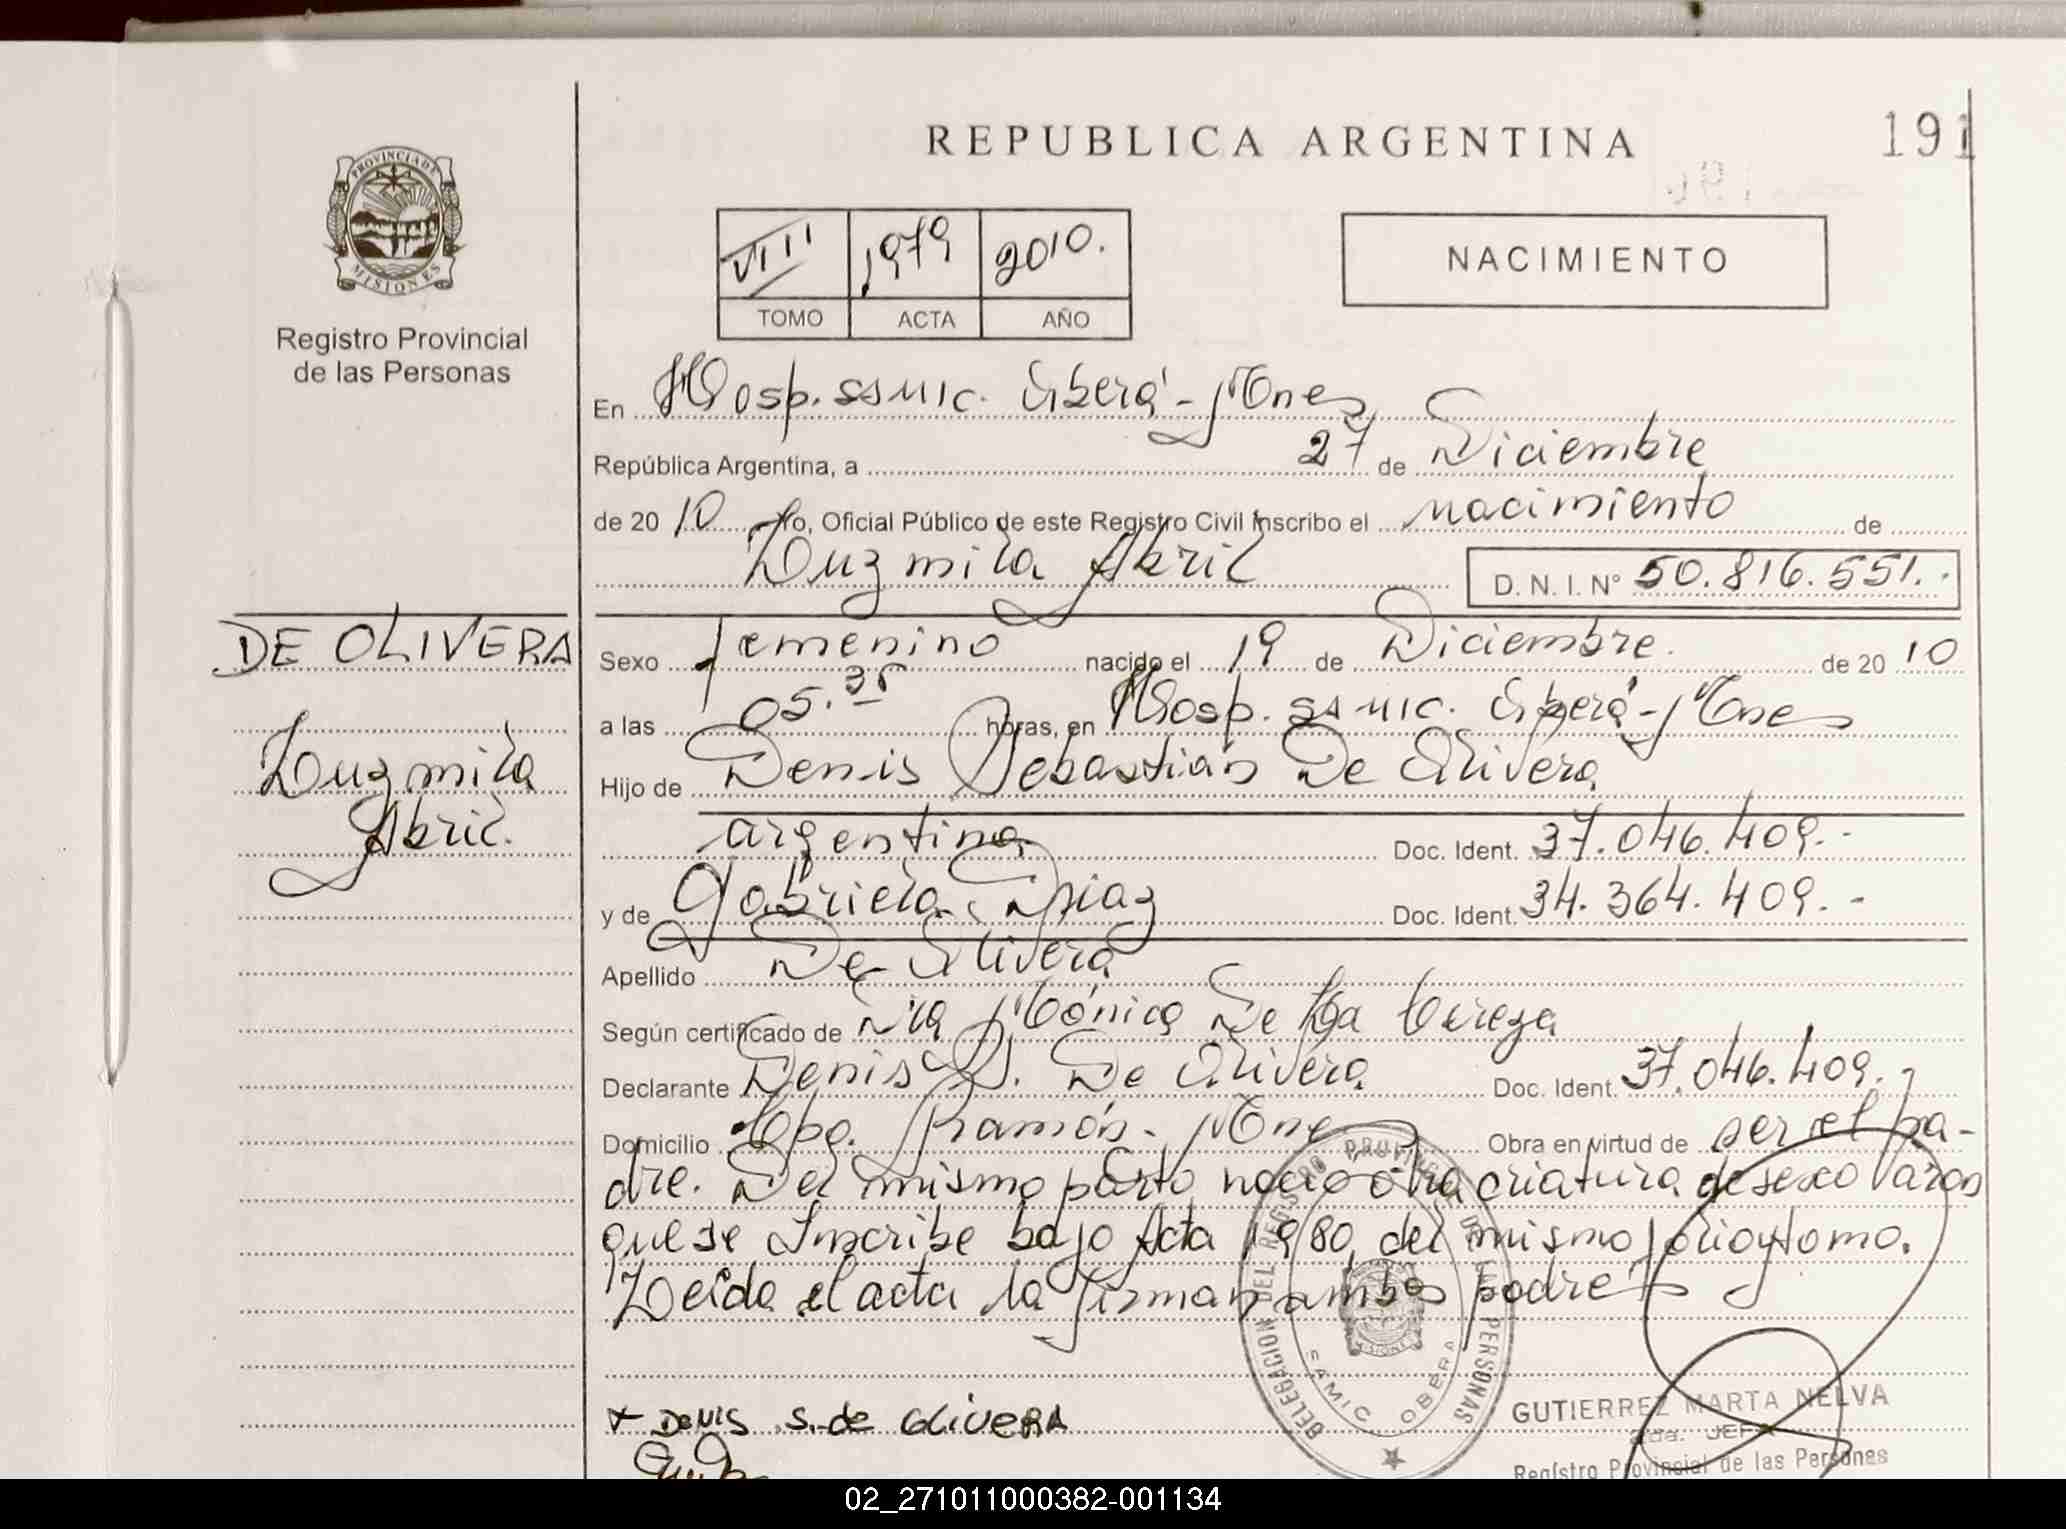 REPUBLICA ARGENTINA
191
PROVINCIA DE MISIONES
Registro Provincial
de las Personas
VIII 1979 2010.
TOMO ACTA AÑO
NACIMIENTO
En Hosp. SAMIC. Oberá - Mnes
República Argentina, a 27 de Diciembre
de 20 10 Yo, Oficial Público de este Registro Civil Inscribo el nacimiento de
Luzmila Abril D. N. I. N° 50.816.551.-
DE OLIVERA
Luzmila
Abril.
Sexo femenino nacido el 19 de Diciembre. de 20 10
a las 05.35 horas, en Hosp. SAMIC. Oberá - Mnes
Hijo de Denis Sebastián De Olivera
argentina Doc. Ident. 37.046.409.-
y de Gabriela Díaz Doc. Ident. 34.364.409.-
Apellido De Olivera
Según certificado de Dra Mónica De La
Declarante Denis S. De Olivera Doc. Ident. 37.046.409.-
Domicilio Cpo. Ramón - Mnes Obra en virtud de ser el pa-
dre. Del mismo parto nació otra criatura de sexo varon
que se Inscribe bajo Acta 1980, del mismo folio y tomo.
Leída el acta la firman ambos padres
DELEGACION DEL REGISTRO PROVINCIAL DE LAS PERSONAS
SAMIC OBERA
MISIONES
DENIS S. de OLIVERA
GUTIERREZ MARTA NELVA
JEFA
Registro Provincial de las Personas
02_271011000382-001134